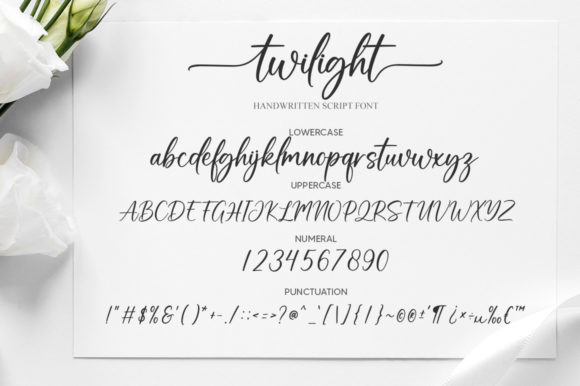 twilight
HANDWRITTEN SCRIPT FONT
LOWERCASE
abcdefghijklmnopqrstuvwxyz
UPPERCASE
ABCDEFGHIJKLMNOPQRSTUVWXYZ
NUMERAL
1234567890
PUNCTUATION
!"#$%&'()*+-./:;<=>?@^_`[\]{|}~©®±¶¿×÷µ‰€™